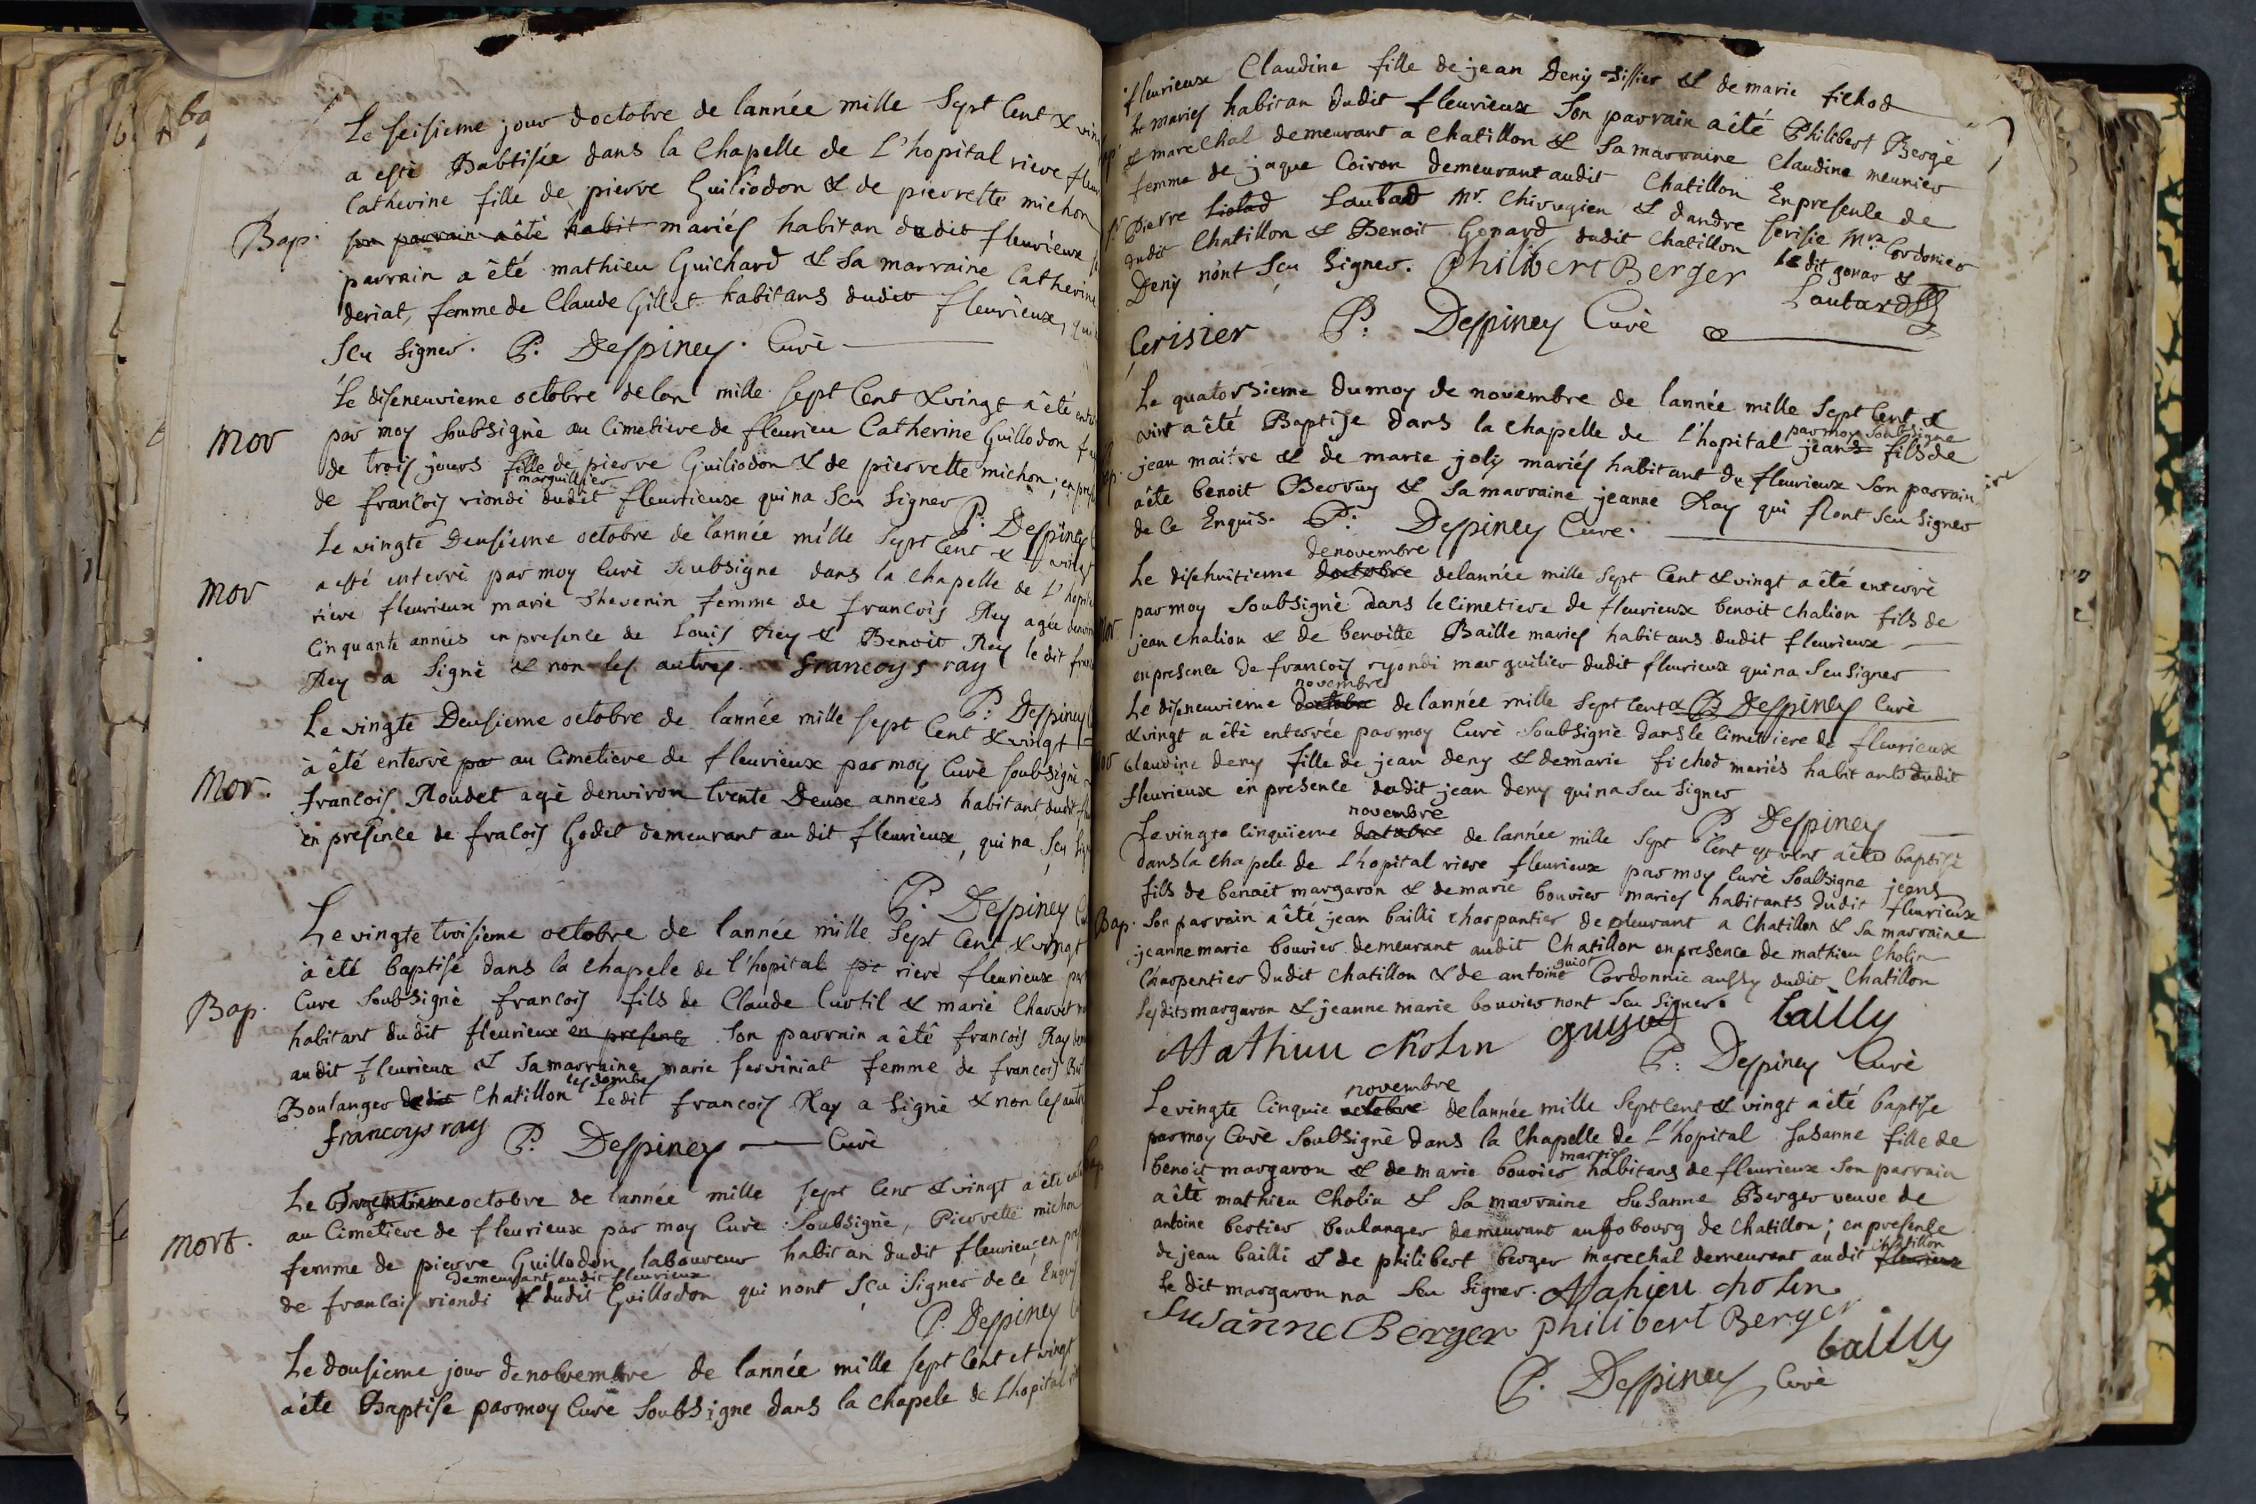 Le seisieme jour doctobre de lannée mille Sept Cent & vin
a esté Babtisée dans la Chapelle de L'hopital riere fleur
Catherine fille de pierre Guiliodon & de pierrette michon
Bap. son parrain a été habit mariés habitan dudit fleurieux
parrain a été mathieu Guichard & sa marraine Catherine
deriat, femme de Claude Gillet habitans dudit fleurieux, qui
sçu signer. P. Despiney. Curé
Le diseneuvieme octobre de lan mille sept Cent & vingt a été
Mor par moy soubsigné au Cimetiere de fleurieu Catherine Guillodon
de trois jours fille de pierre Guiliodon & de pierrette michon, en
marguillier
de francois riondi dudit fleurieux qui na sçu signer
P. Despiney
Le vingte Deusieme octobre de lannée mille Sept Cent & vingt
Mor a esté enterré par moy Curé soubsigne dans la Chapelle de L'hopi
riere fleurieux marie Thevenin femme de francois Rey agée denviron
Cinquante années en presence de Louis Rey & Benoit Rey le dit fran
Rey a Signé & non les autres. francoys ray
P. Despiney
Le vingte Deusieme octobre de lannée mille sept Cent & vingt
a été enterré par au Cimetiere de fleurieux par moy Curé soubsigné
Mor. francois Roudet agé denviron trente Deux années habitant dudit
en presence de fracois Godet demeurant au dit fleurieux, qui na sçu
P. Despiney
Le vingte troisieme octobre de lannée mille Sept Cent & vingt
a été baptisé dans la chapele de l'hopital riere fleurieux par
Bap. Cure Soubsigné francois fils de Claude Curtil & marie Charvet
habitant dudit fleurieux en presence son parrain a été francois Ray
audit fleurieux & Samarraine marie ferviniat femme de francois
les dombes
Boulanger dudit Chatillon Ledit francois Ray a Signé & non les autr
francoys ray P. Despiney Curé
Le trentieme octobre de lannée mille sept Cent & vingt a été
Mort. au Cimetiere de fleurieux par moy Curé Soubsigné, Pierrette michon
femme de pierre Guillodon laboureur habitan dudit fleurieu, en
demeurant audit fleurieux
de francois riondi & dudit Guillodon qui nont sçu signer de ce Enquis
P. Despiney
Le dousieme jour de novembre de lannée mille sept Cent et vingt
a été Baptise par moy Curé Soubsigne dans la chapele de Lhopital
fleurieux Claudine fille de jean Deny & de marie fichod
mariés habitan dudit fleurieux Son parrain a été Philibert Bergé
marechal demeurant a Chatillon & sa marraine Claudine meunier
femme de jaque Coiron demeurant audit Chatillon En presente de
Pierre Lautard Mr. Chirugien & dandre serisie Mre Cordonier
dudit Chatillon & Benoit Gonard dudit Chatillon le dit gonar &
Deny nont Sçu Signer. Philibert Berger Lautard
Cerisier P. Despiney Curé
Le quatorsieme du moy de novembre de lannée mille Sept Cent &
vint a été Baptise dans la chapelle de l'hopital jean fils de
par moy soubsigne
jean maitre & de marie joly mariés habitant de fleurieux son parrain
a été benoit Berruy & sa marraine jeanne Ray qui nont sçu signer
de Ce Enquis. P. Despiney Curé.
de novembre
Le disehuitieme doctobre delannée mille Sept Cent & vingt a été enterré
par moy Soubsigné dans le cimetiere de fleurieux benoit chalion fils de
jean chalion & de benoitte Baille mariés habitans dudit fleurieux
en presence de francois ryondi marguilier dudit fleurieux qui na Seu signer
novembre
Le diseneuvieme doctobre de lannée mille sept Cent & P. Despiney Curé
& vingt a été enterrée par moy Curé Soubsigné dans le Cimetiere de fleurieux
Claudine deny fille de jean deny & de marie fichod mariés habitants dudit
fleurieux en presence dudit jean deny qui na Seu signer
P. Despiney
novembre
Le vingte Cinquieme doctobre de lannée mille Sept Cent et vint a été baptisé
dans la chapele de Lhopital riere fleurieux par moy Curé Soubsigne jean
fils de benoit margaron & de marie bouvier mariés habitants dudit fleurieux
Bap. Son parrain a été jean bailli charpantier demeurant a Chatillon & sa marraine
jeanne marie bouvier demeurant audit Chatillon en presence de mathieu Cholin
guiot
Charpentier dudit Chatillon & de antoine Cordonnie aussy dudit Chatillon
Lesdits margaron & jeanne marie bouvier nont Seu signer.
Mathieu cholin guyot bailly
P. Despiney Curé
novembre
Le vingte Cinquie octobre delannée mille Sept Cent & vingt a été baptise
par moy Curé Soubsigné dans la Chapelle de L'hopital Susanne fille de
mariés
benoit margaron & de marie bouvier habitans de fleurieux son parrain
a été mathieu Cholin & Sa marraine Susanne Berger veuve de
antoine bertier boulanger demeurant au fobourg de Chatillon; en presente
de jean bailli & de philibert berger marechal demeurant audit fleurieux
chatillon
Le dit margaron na Seu Signer. Mahieu cholin
Susanne Berger philibert Berger bailly
P. Despiney Curé